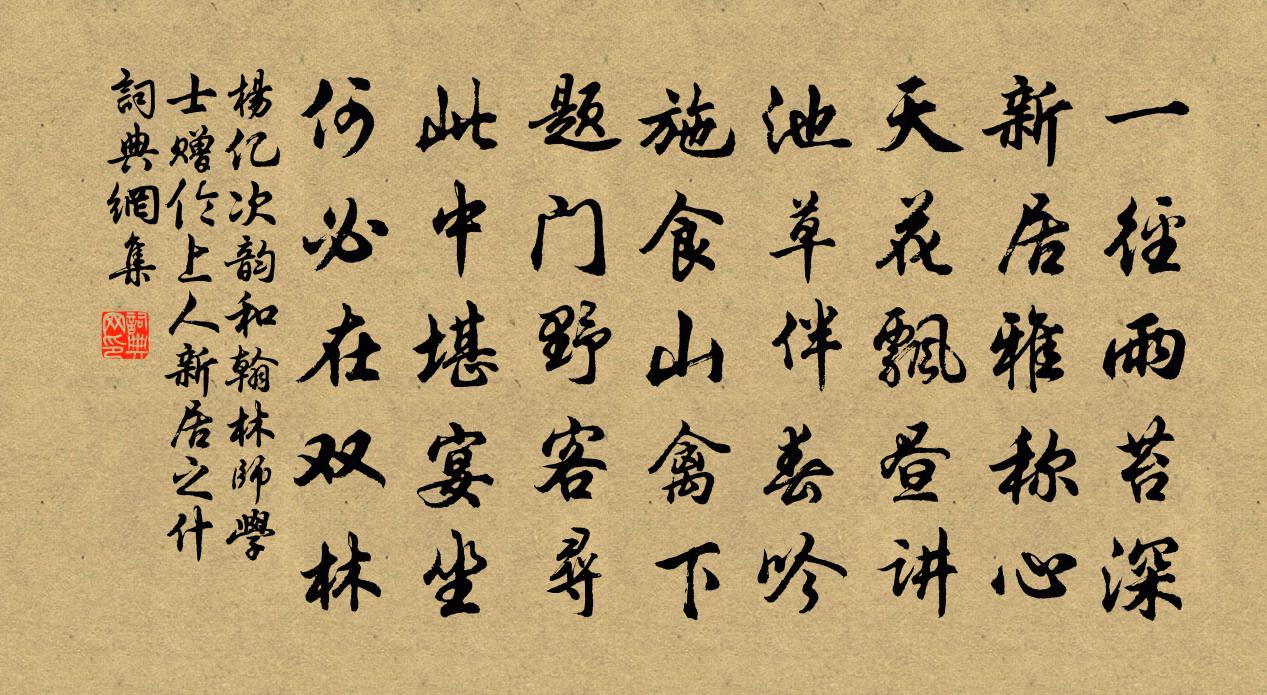 一徑雨苔深
新居雅称心
天花飄昼讲
池草伴春吟
施食山禽下
题门野客尋
此中堪宴坐
何必在双林
楊亿次韵和翰林師學
士赠伦上人新居之什
詞典網集
詞典网印